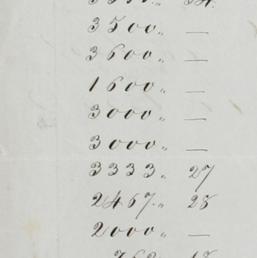 3500 „ —
3600 „ —
1600 „ —
3000 „ —
3000 „ —
3333 „ 27
2467 „ 28
2000 „ —